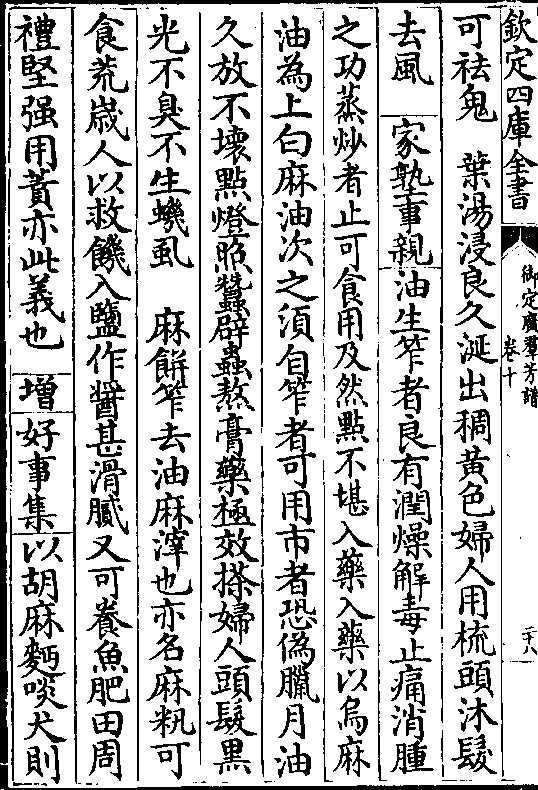 欽定四庫全書
御定廣羣芳譜
卷十
二十八
可祛鬼　葉湯浸良久涎出稠黃色婦人用梳頭沐髮
去風　家塾事親　油生笮者良有潤燥解毒止痛消腫
之功蒸炒者止可食用及然點不堪入藥入藥以烏麻
油為上白麻油次之須自笮者可用市者恐偽臘月油
久放不壞點燈照蠶辟蟲熬膏藥極效搽婦人頭髮黑
光不臭不生蟣虱　麻餅笮去油麻滓也亦名麻籸可
食荒歲人以救饑入鹽作醤甚滑膩又可養魚肥田周
禮堅强用蕡亦此義也　增　好事集　以胡麻麪啖犬則